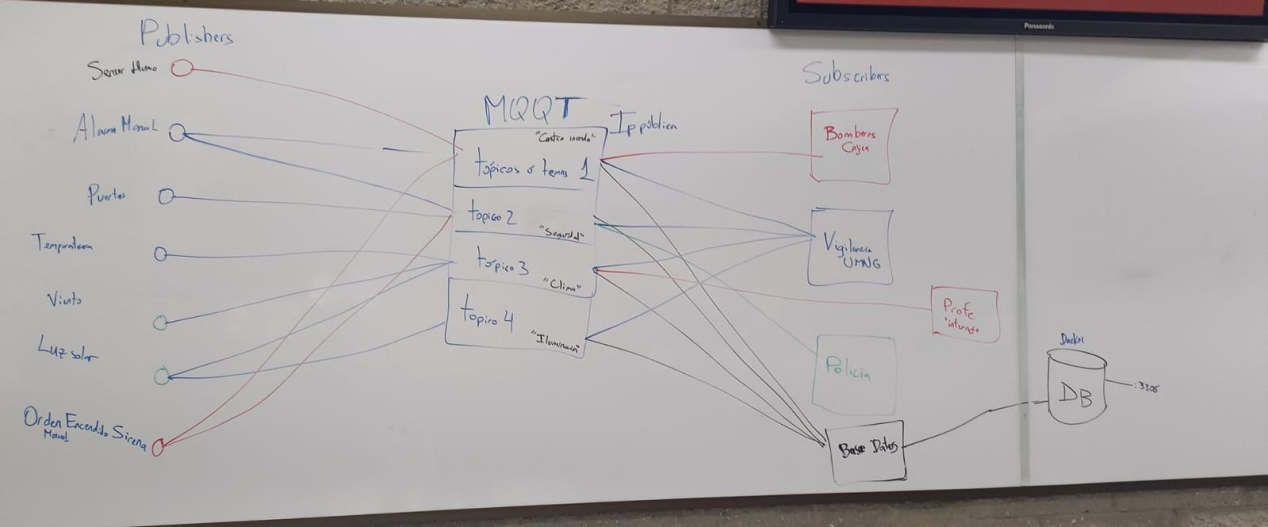 Panasonic
Publishers
Sensor Humo
Alarma Manual
Puertas
Temperatura
Viento
Luz solar
Orden Encendido Sirena
Manual
MQQT
Ip pública
tópicos o temas 1
topico 2
"Seguridad"
topico 3
"Clima"
topico 4
"Iluminación"
Subscribers
Bomberos
Cajica
Vigilancia
UMNG
Profe
Policia
Base Datos
Docker
DB